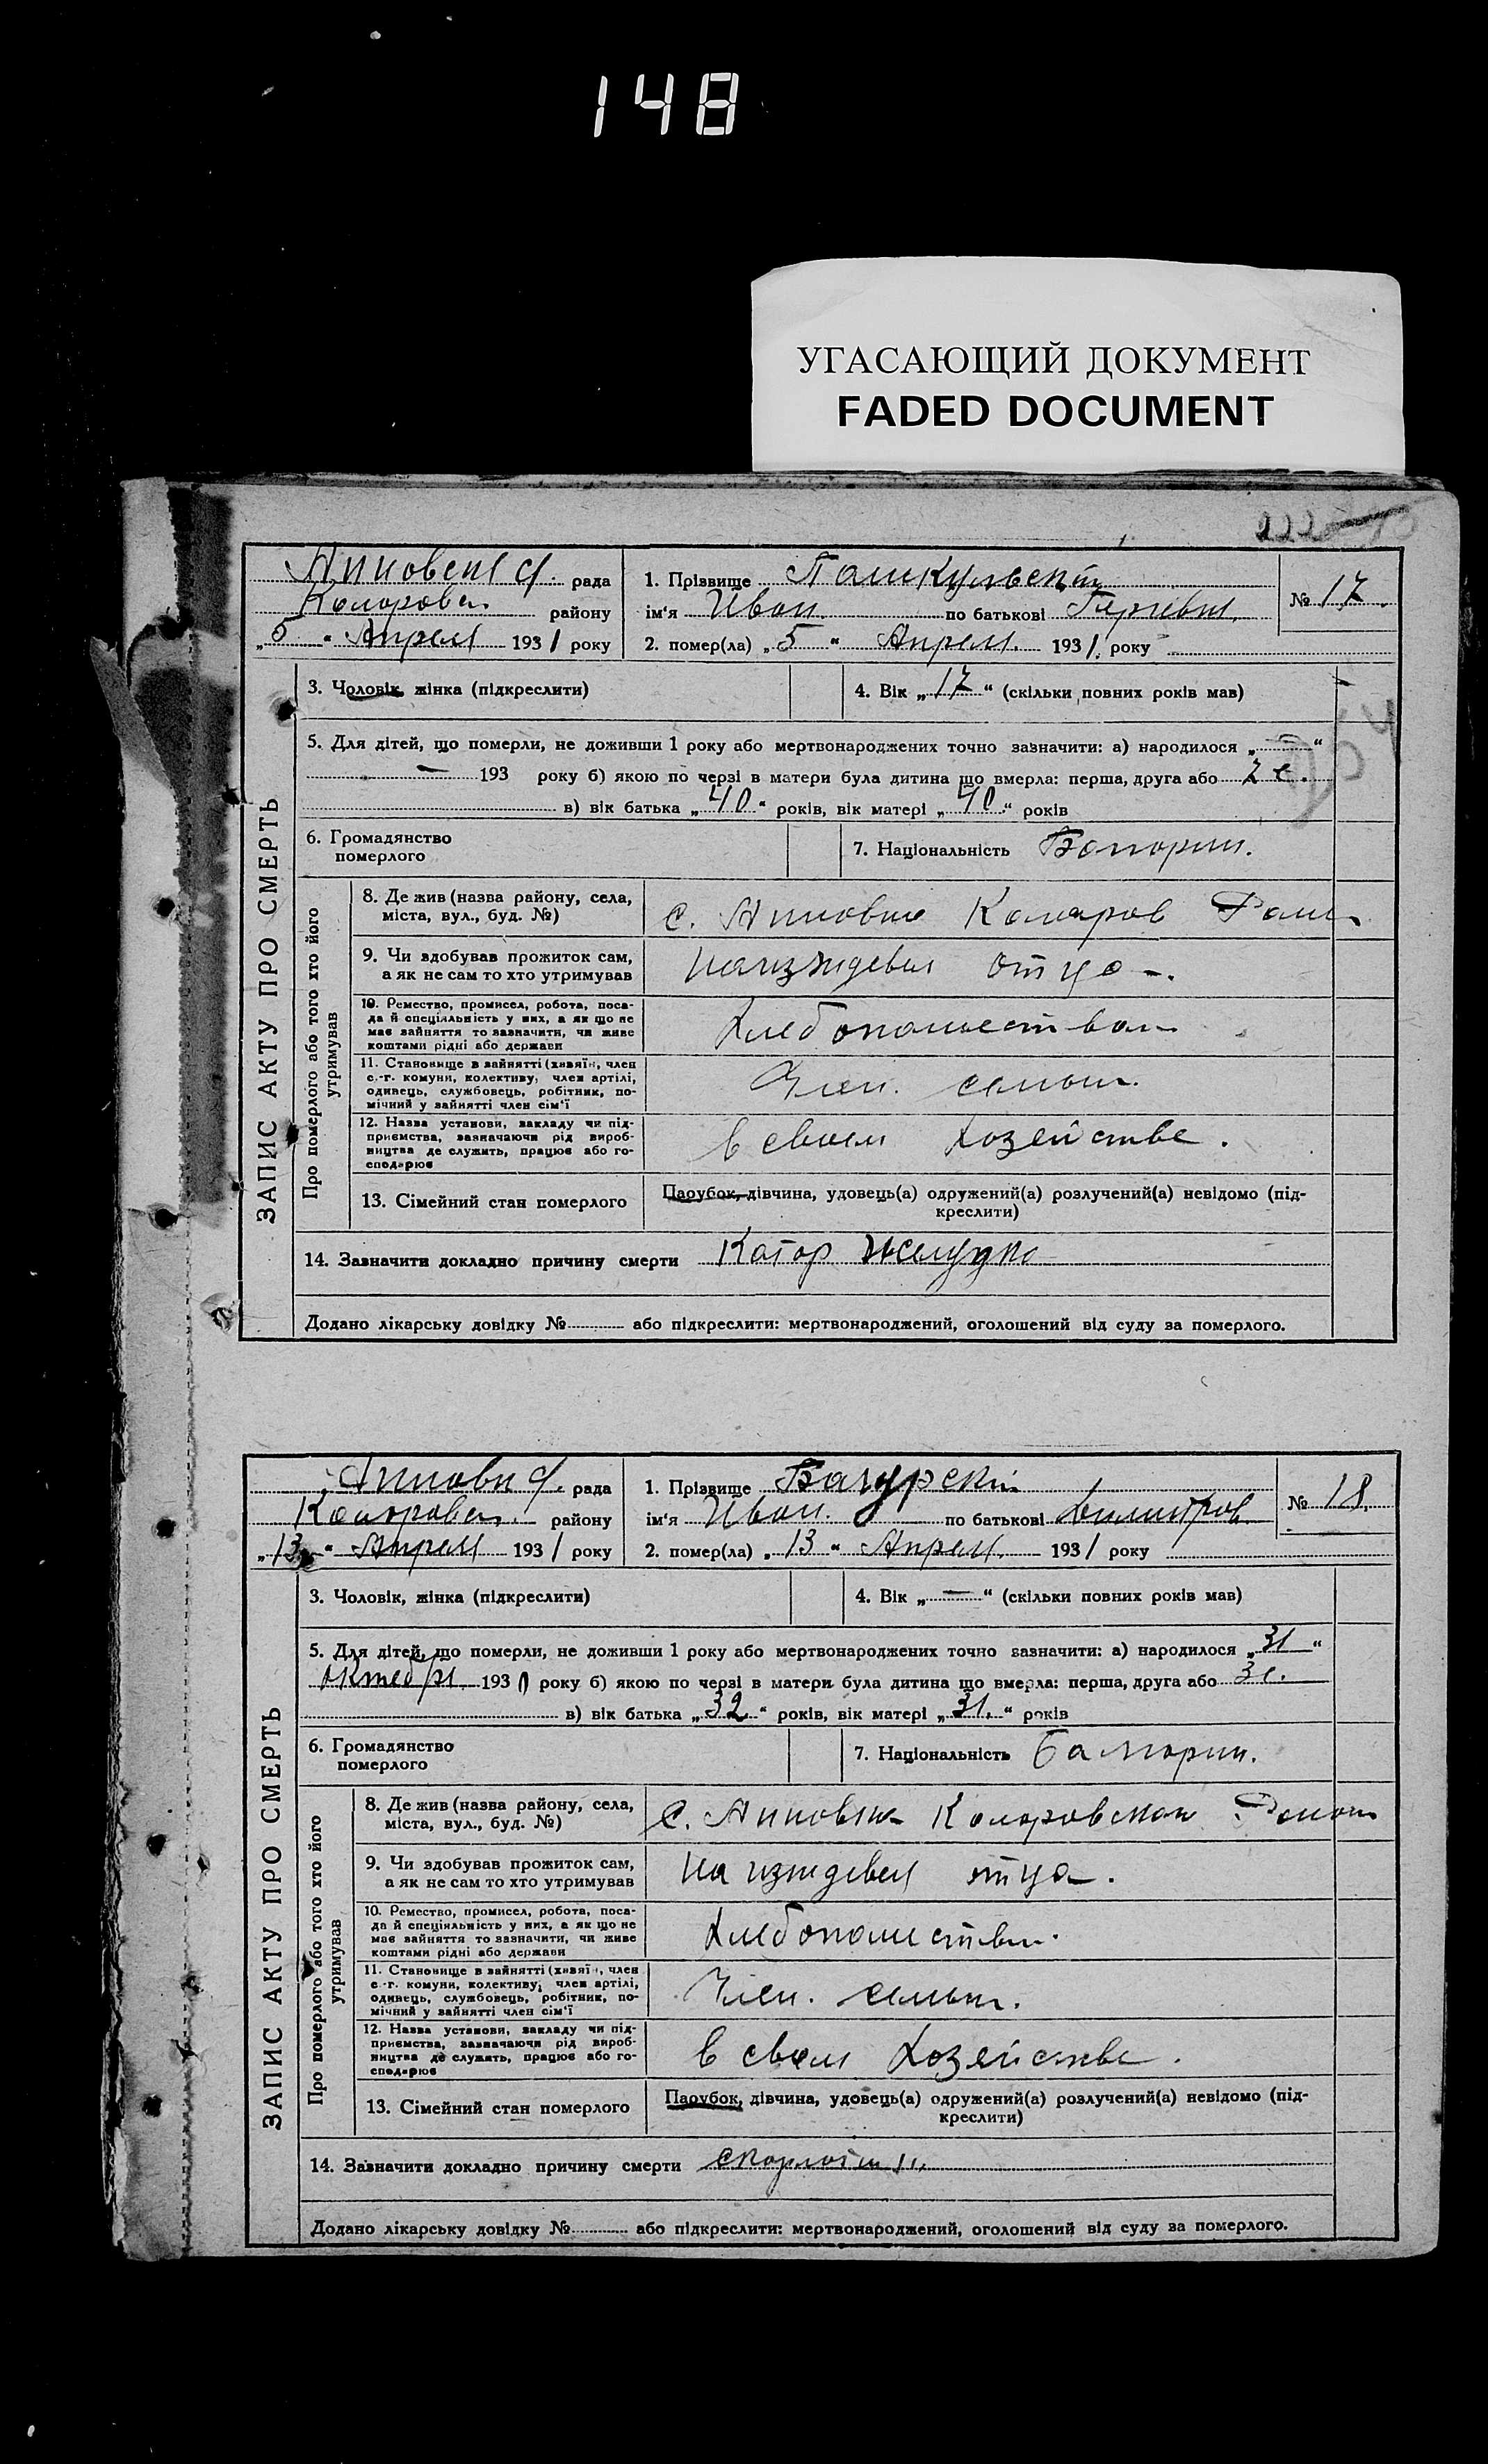 148
УГАСАЮЩИЙ ДОКУМЕНТ
FADED DOCUMENT
222
ЗАПИС АКТУ ПРО СМЕРТЬ
рада
району
„5“ Апреля 1931 року
1. Прізвище
ім'я Иван. по батькові
2. помер(ла) „5“ Апреля. 1931. року
№ 17.
3. Чоловік, жінка (підкреслити)
4. Вік „17“ (скільки повних років мав)
5. Для дітей, що померли, не доживши 1 року або мертвонароджених точно зазначити: а) народилося „—“
— 193 року б) якою по черзі в матери була дитина що вмерла: перша, друга або 2 е.
в) вік батька „40“ років, вік матері „40“ років
6. Громадянство
померлого
7. Національність Болгарин.
Про померлого або того хто його
утримував
8. Де жив (назва району, села,
міста, вул., буд. №)
с. Анновка
9. Чи здобував прожиток сам,
а як не сам то хто утримував
на иждевеи отца.
10. Ремество, промисел, робота, поса-
да й спеціяльність у них, а як що не
має зайняття то зазначити, чи живе
коштами рідні або держави
11. Становище в зайнятті (хазяїн, член
с.-г. комуни, колективу, член артілі,
одинець, службовець, робітник, по-
мічний у зайнятті член сім'ї
Член. семьи.
12. Назва установи, закладу чи під-
приємства, зазначаючи рід вироб-
ництва де служить, працює або го-
сподарює
в своем хозействе.
13. Сімейний стан померлого
Парубок, дівчина, удовець(а) одружений(а) розлучений(а) невідомо (під-
креслити)
14. Зазначити докладно причину смерти Катар желудка
Додано лікарську довідку № або підкреслити: мертвонароджений, оголошений від суду за померлого.
ЗАПИС АКТУ ПРО СМЕРТЬ
рада
району
„13“ Апреля 1931 року
1. Прізвище
ім'я Иван. по батькові Димитров
2. помер(ла) „13“ Апреля. 1931 року
№ 18.
3. Чоловік, жінка (підкреслити)
4. Вік „—“ (скільки повних років мав)
5. Для дітей, що померли, не доживши 1 року або мертвонароджених точно зазначити: а) народилося „31“
октебря 1930 року б) якою по черзі в матери була дитина що вмерла: перша, друга або 3 е.
в) вік батька „32“ років, вік матері „31.“ років
6. Громадянство
померлого
7. Національність Болгарин.
Про померлого або того хто його
утримував
8. Де жив (назва району, села,
міста, вул., буд. №)
с. Анновка
9. Чи здобував прожиток сам,
а як не сам то хто утримував
на иждевеи отца.
10. Ремество, промисел, робота, поса-
да й спеціяльність у них, а як що не
має зайняття то зазначити, чи живе
коштами рідні або держави
11. Становище в зайнятті (хазяїн, член
с.-г. комуни, колективу, член артілі,
одинець, службовець, робітник, по-
мічний у зайнятті член сім'ї
Член. семьи.
12. Назва установи, закладу чи під-
приємства, зазначаючи рід вироб-
ництва де служить, працює або го-
сподарює
в своем хозействе.
13. Сімейний стан померлого
Парубок, дівчина, удовець(а) одружений(а) розлучений(а) невідомо (під-
креслити)
14. Зазначити докладно причину смерти скарлатина
Додано лікарську довідку № або підкреслити: мертвонароджений, оголошений від суду за померлого.